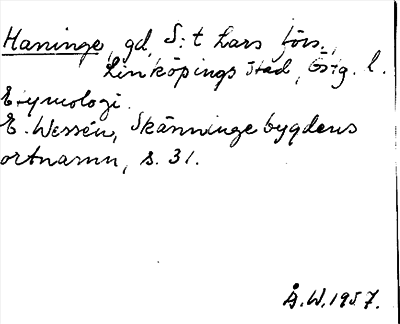 Haninge, gd, S:t Lars förs.,
Linköpings stad, Östg. l.
Etymologi.
E. Wessén, Skänningebygdens
ortnamn, s. 31.
Å.W. 1957.